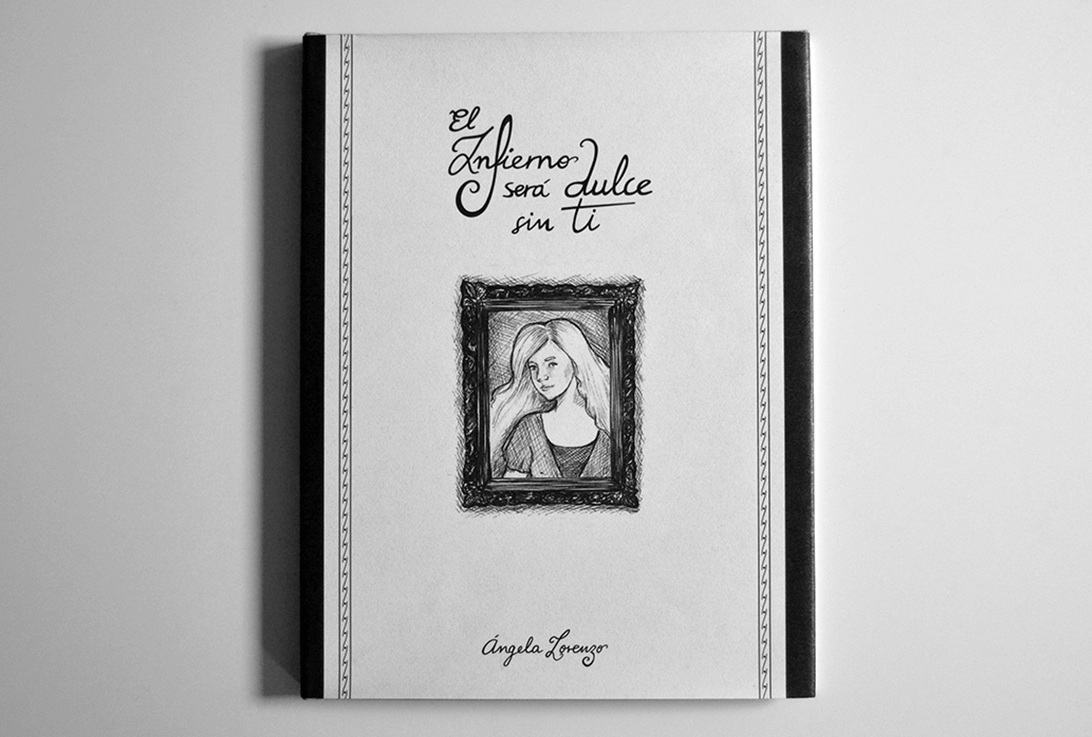 El
Infierno
será dulce
sin ti
Ángela Lorenzo